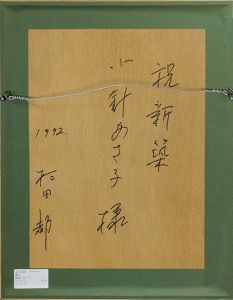 祝新築
小針あさ子様
1992.
杉田都